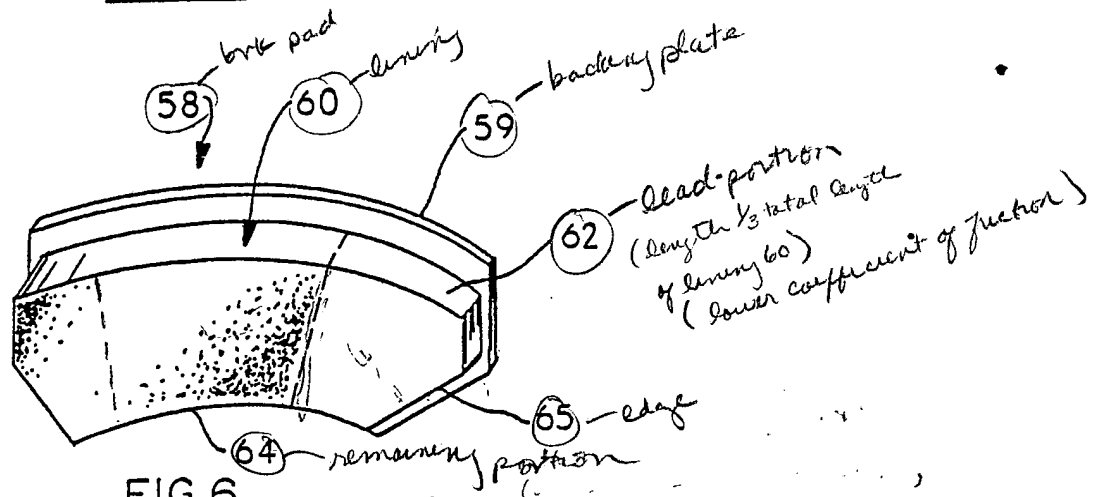 58 brk pad
60 lining
59 backing plate
62 lead portion
(length 1/3 total length
of lining 60)
(lower coefficient of friction)
65 edge
64 remaining portion
FIG.6